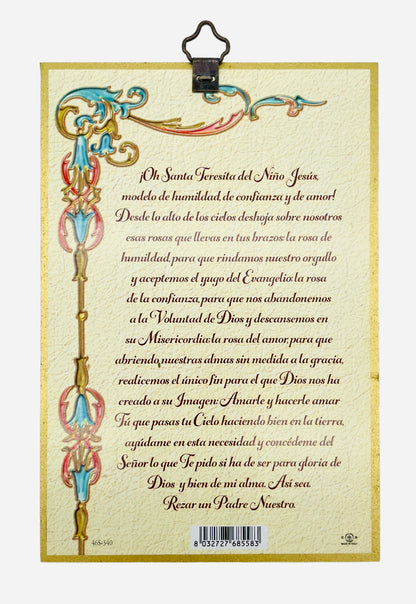 ¡Oh Santa Teresita del Niño Jesús,
modelo de humildad, de confianza y de amor!
Desde lo alto de los cielos deshoja sobre nosotros
esas rosas que llevas en tus brazos: la rosa de
humildad, para que rindamos nuestro orgullo
y aceptemos el yugo del Evangelio: la rosa
de la confianza, para que nos abandonemos
a la Voluntad de Dios y descansemos en
su Misericordia: la rosa del amor, para que
abriendo nuestras almas sin medida a la gracia,
realicemos el único fin para el que Dios nos ha
creado a su Imagen: Amarle y hacerle amar
Tú que pasas tu Cielo haciendo bien en la tierra,
ayúdame en esta necesidad y concédeme del
Señor lo que Te pido si ha de ser para gloria de
Dios y bien de mi alma. Así sea.
Rezar un Padre Nuestro.
465-340
8 032727 685583
MADE IN ITALY